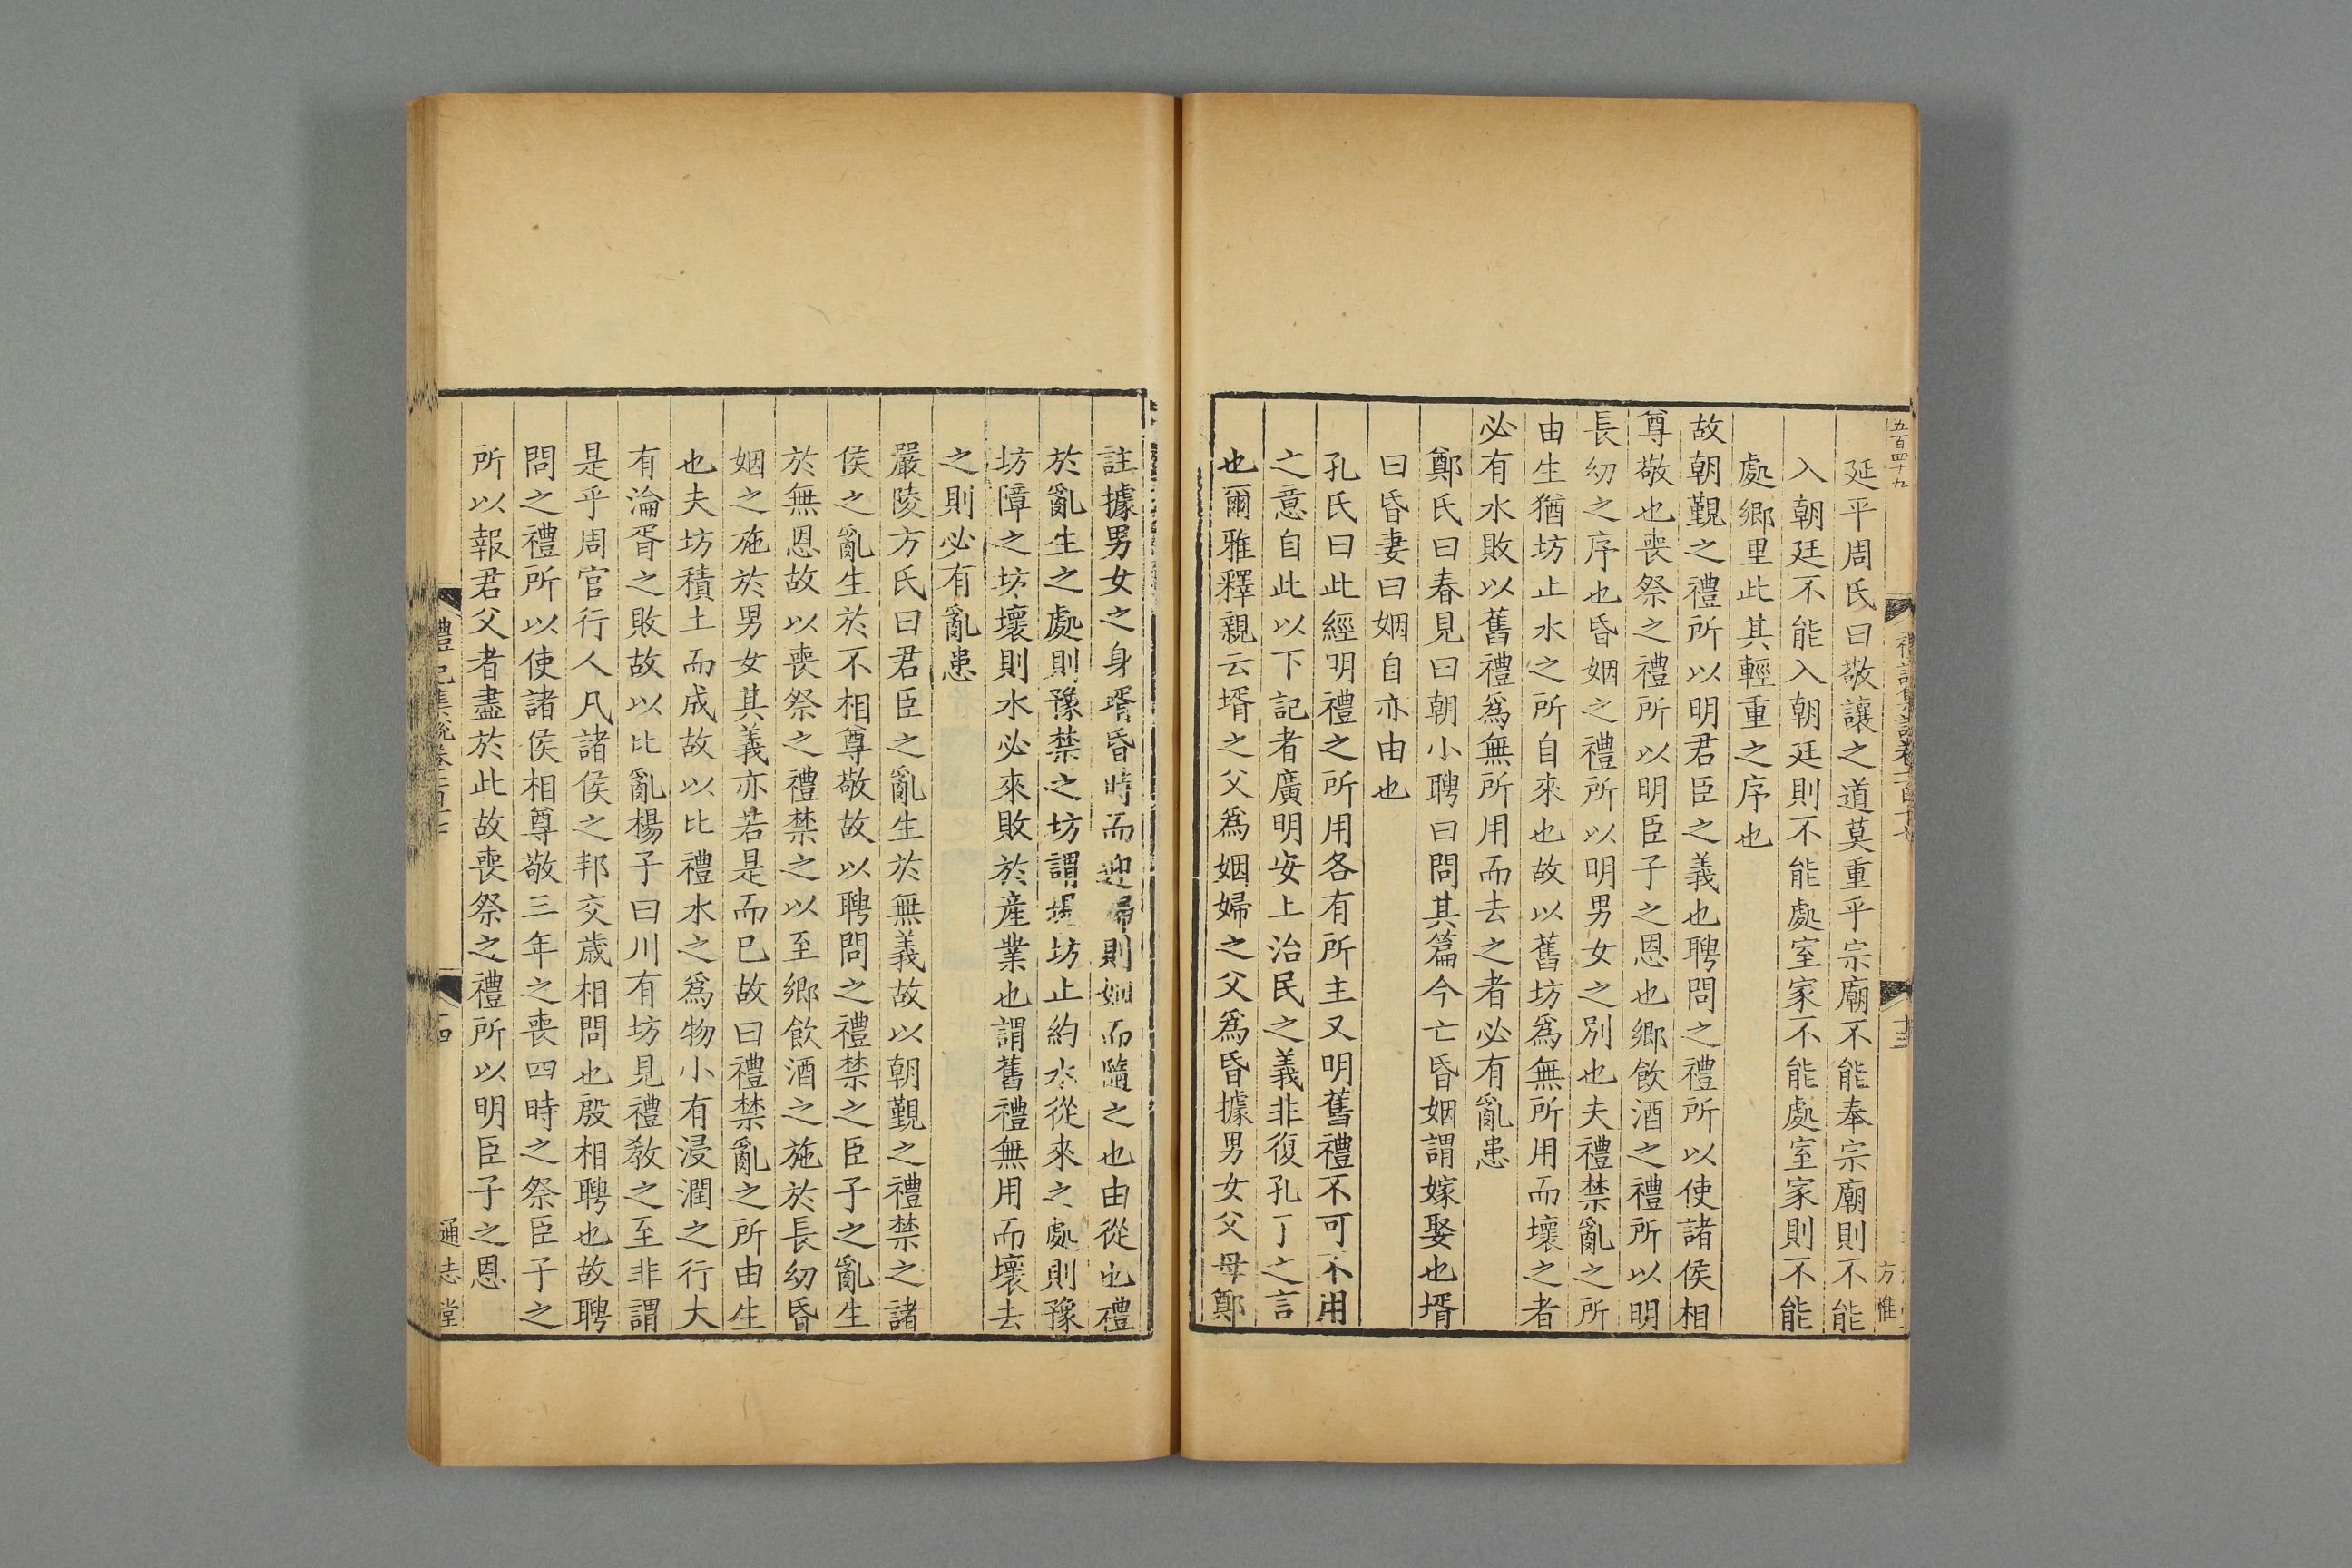 五百四十九
方惟
延平周氏曰敬讓之道莫重乎宗廟不能奉宗廟則不能
入朝廷不能入朝廷則不能處室家不能處室家則不能
處鄉里此其輕重之序也
故朝覲之禮所以明君臣之義也聘問之禮所以使諸侯相
尊敬也喪祭之禮所以明臣子之恩也鄉飲酒之禮所以明
長幼之序也昏姻之禮所以明男女之別也夫禮禁亂之所
由生猶坊止水之所自來也故以舊坊爲無所用而壞之者
必有水敗以舊禮爲無所用而去之者必有亂患
鄭氏曰春見曰朝小聘曰問其篇今亡昏姻謂嫁娶也壻
曰昏妻曰姻自亦由也
孔氏曰此經明禮之所用各有所主又明舊禮不可不用
之意自此以下記者廣明安上治民之義非復孔丁之言
也爾雅釋親云壻之父爲姻婦之父爲昏據男女父母鄭
註據男女之身壻昏時而迎婦則姻而隨之也由從也禮
於亂生之處則豫禁之坊謂堤坊止約水從來之處則豫
坊障之坊壞則水必來敗於産業也謂舊禮無用而壞去
之則必有亂患
嚴陵方氏曰君臣之亂生於無義故以朝覲之禮禁之諸
侯之亂生於不相尊敬故以聘問之禮禁之臣子之亂生
於無恩故以喪祭之禮禁之以至鄉飲酒之施於長幼昏
姻之施於男女其義亦若是而已故曰禮禁亂之所由生
也夫坊積土而成故以比禮水之爲物小有浸潤之行大
有淪胥之敗故以比亂楊子曰川有坊見禮教之至非謂
是乎周官行人凡諸侯之邦交歲相問也殷相聘也故聘
問之禮所以使諸侯相尊敬三年之喪四時之祭臣子之
所以報君父者盡於此故喪祭之禮所以明臣子之恩
通志堂